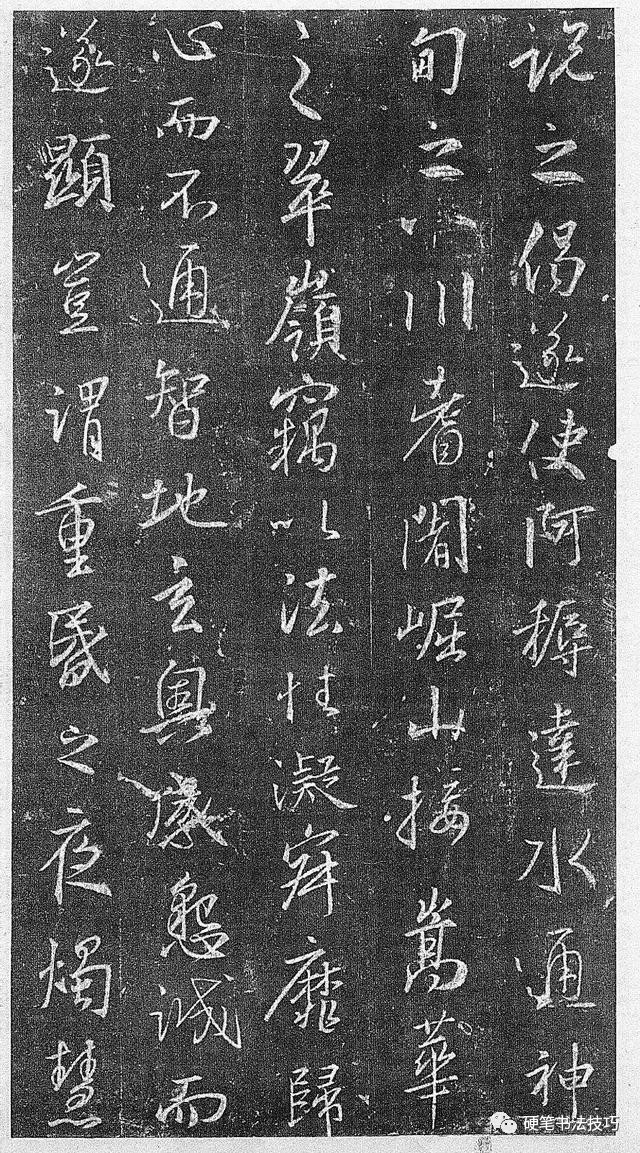 说之偈遂使阿耨達水通神
甸之八川耆闍崛山接嵩華
之翠嶺竊以法性凝寂靡歸
心而不通智地玄奥感懇誠而
遂顯豈謂重昏之夜燭慧
硬笔书法技巧